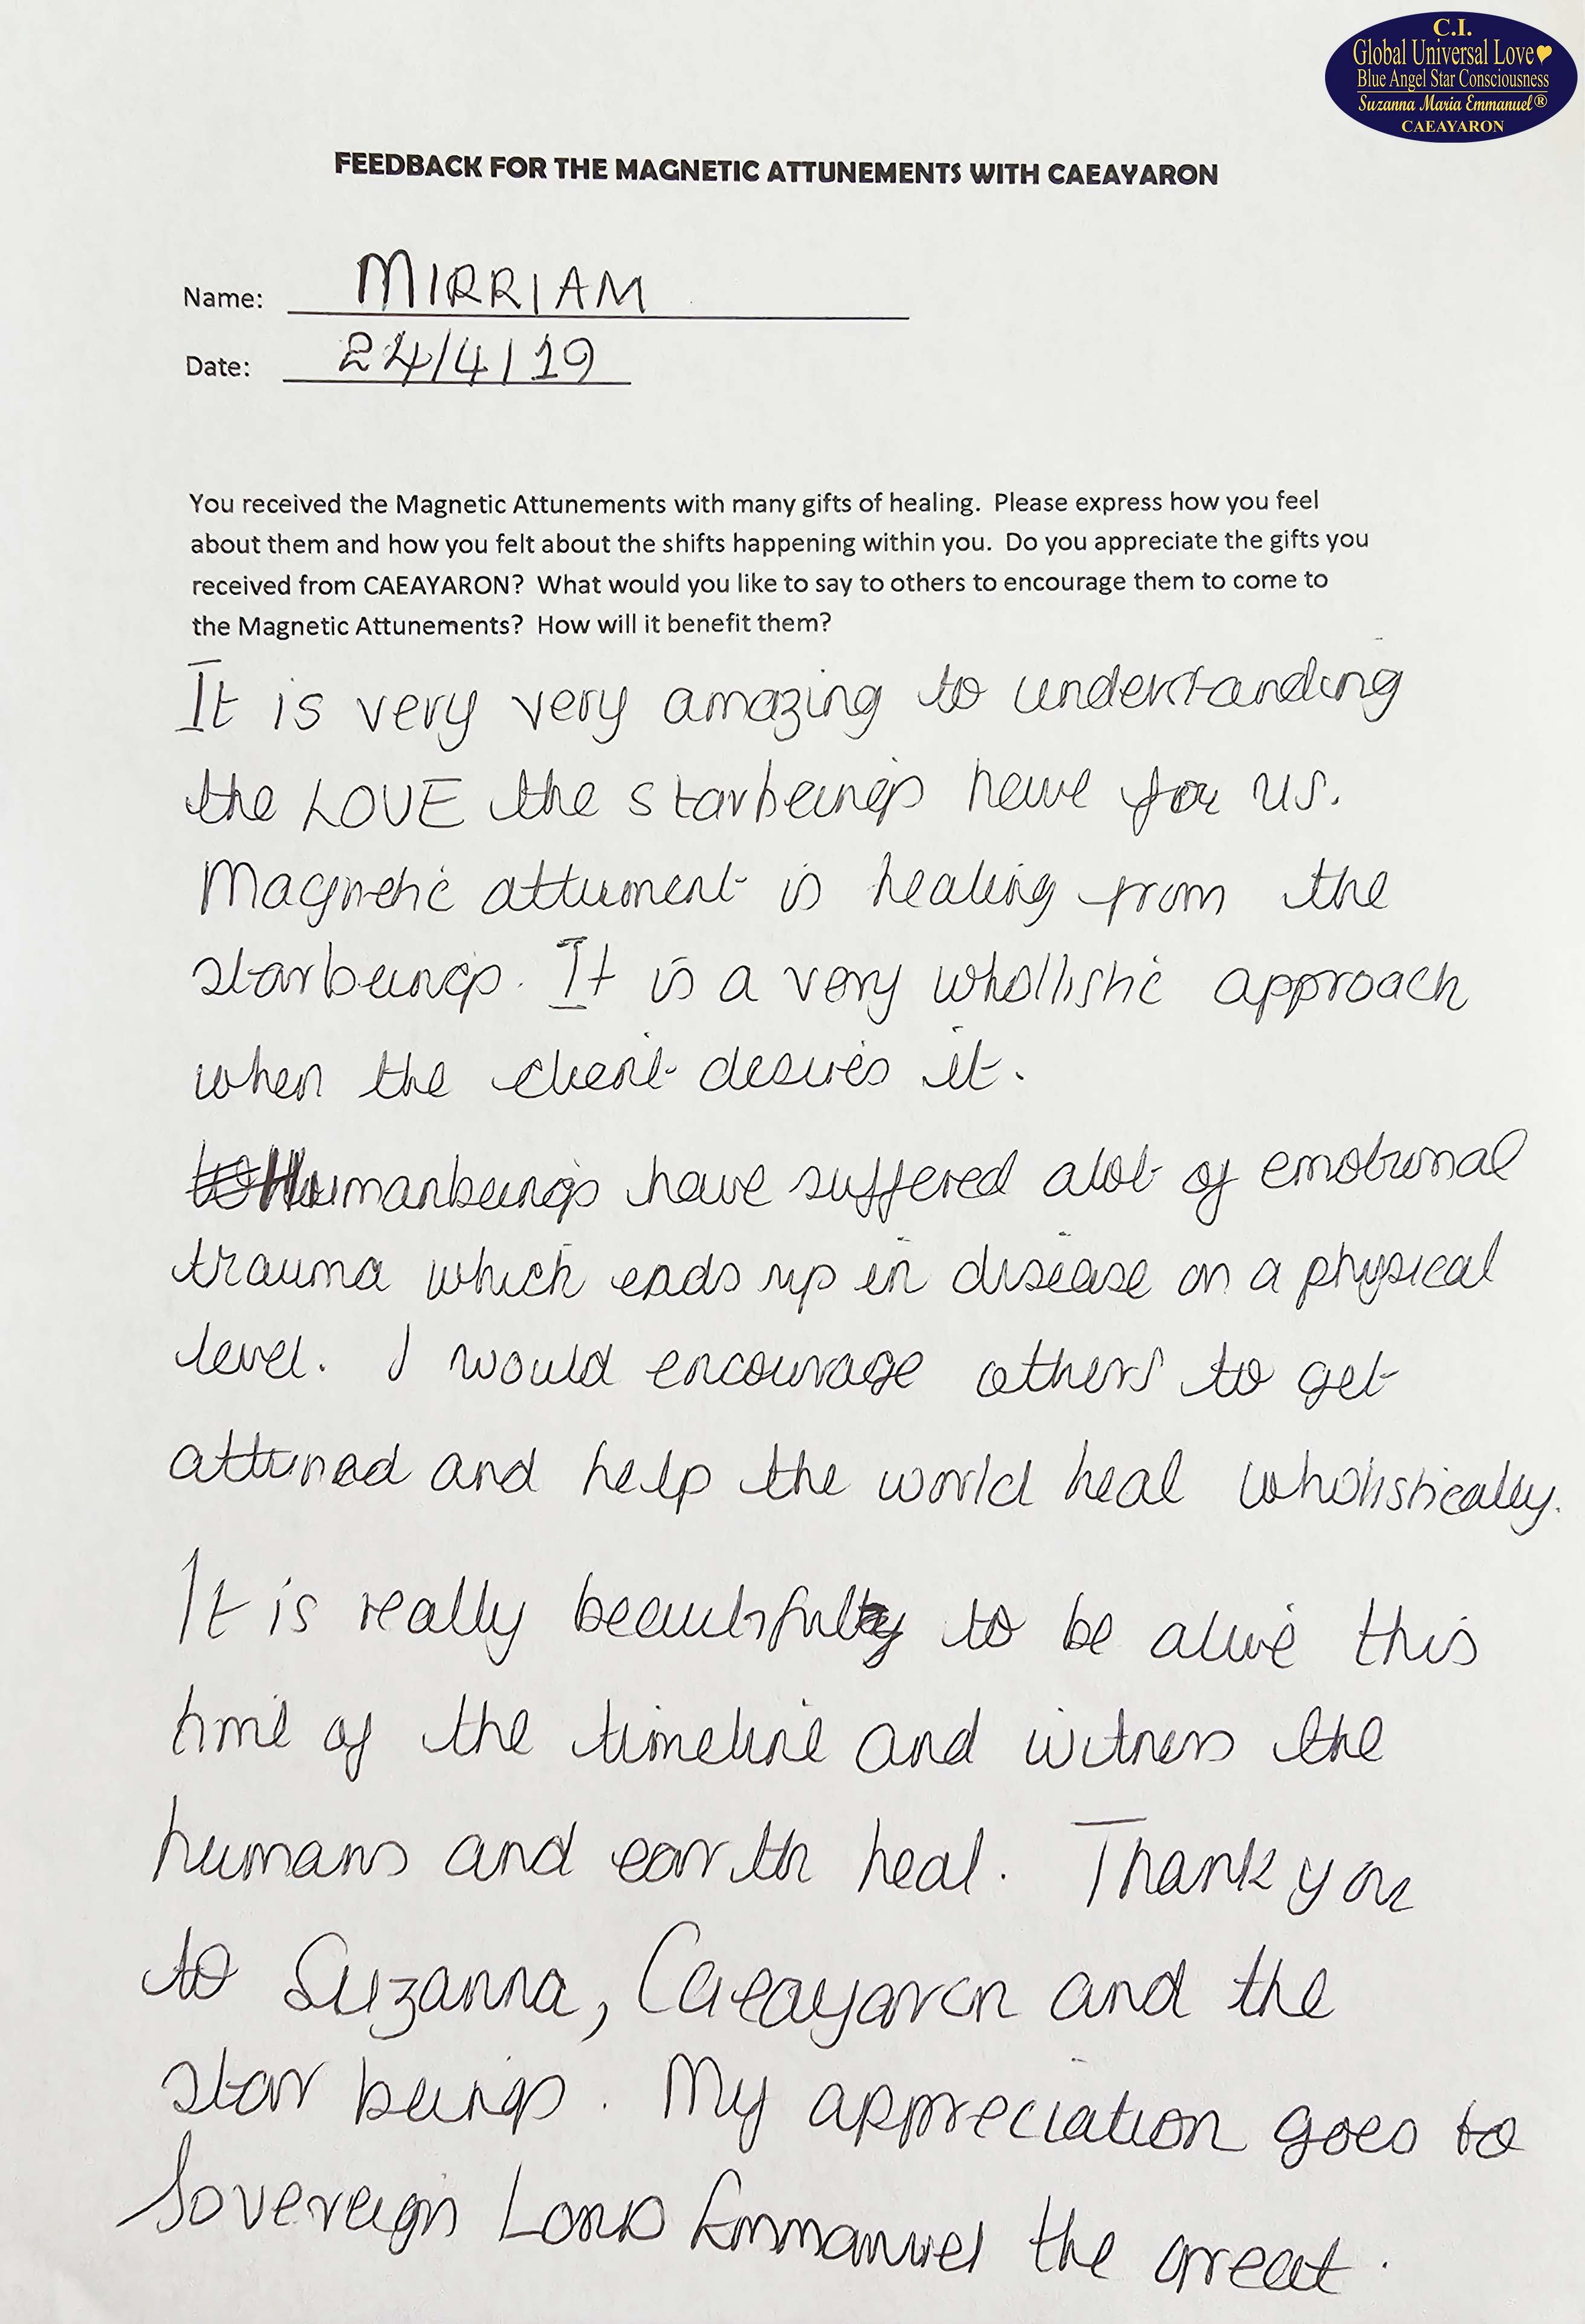 C.I.
Global Universal Love
Blue Angel Star Consciousness
Suzanna Maria Emmanuel®
CAEAYARON
FEEDBACK FOR THE MAGNETIC ATTUNEMENTS WITH CAEAYARON
Name: MIRRIAM
Date: 24/4/19
You received the Magnetic Attunements with many gifts of healing. Please express how you feel
about them and how you felt about the shifts happening within you. Do you appreciate the gifts you
received from CAEAYARON? What would you like to say to others to encourage them to come to
the Magnetic Attunements? How will it benefit them?
It is very very amazing to understanding
the LOVE the starbeings have for us.
Magnetic attument is healing from the
starbeings. It is a very whollistic approach
when the client desires it.
Humanbeings have suffered alot of emotional
trauma which ends up in disease on a physical
level. I would encourage others to get
attuned and help the world heal wholistically.
It is really beautiful to be alive this
time of the timeline and witness the
humans and earth heal. Thank you
to Suzanna, Caeayaron and the
star beings. My appreciation goes to
Sovereign Lord Emmanuel the great.